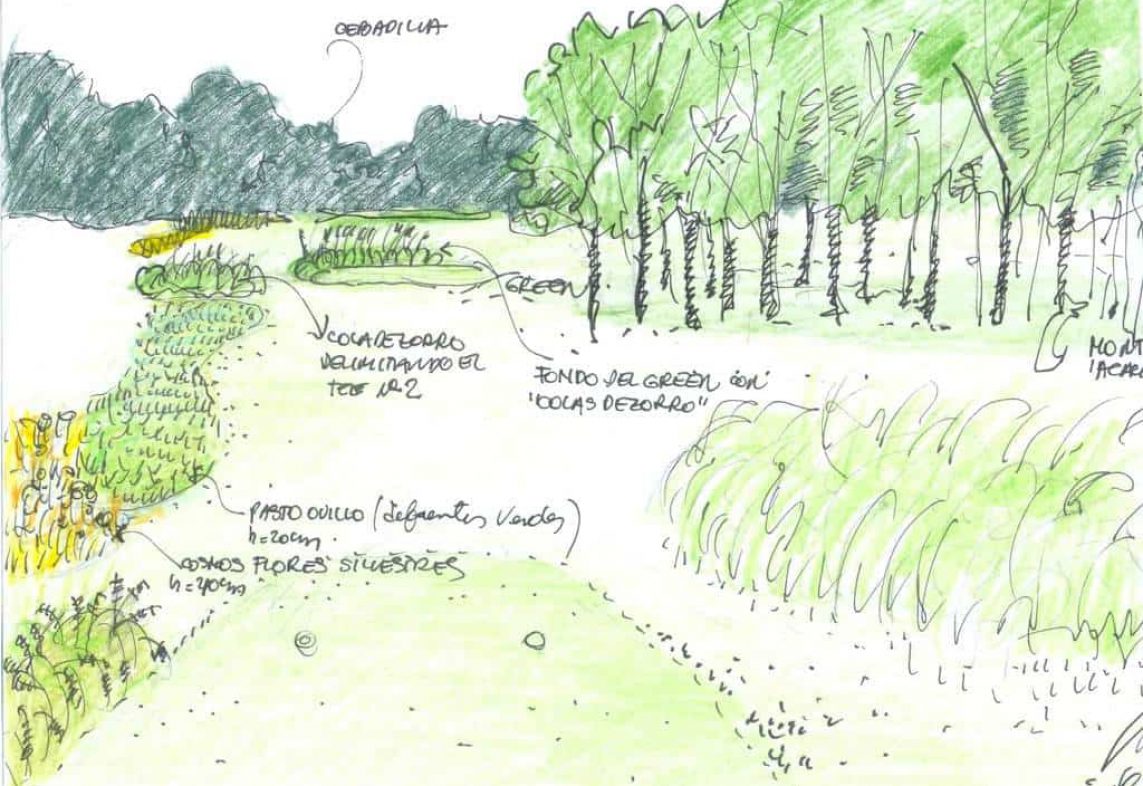 CEBADILLA
GREEN
COLA DE ZORRO
DELIMITANDO EL
TEE Nº2
FONDO DEL GREEN CON
"COLAS DE ZORRO"
MONT
PASTO OVILLO (diferentes verdes)
h=20cm
COSMOS FLORES SILVESTRES
h=40cm